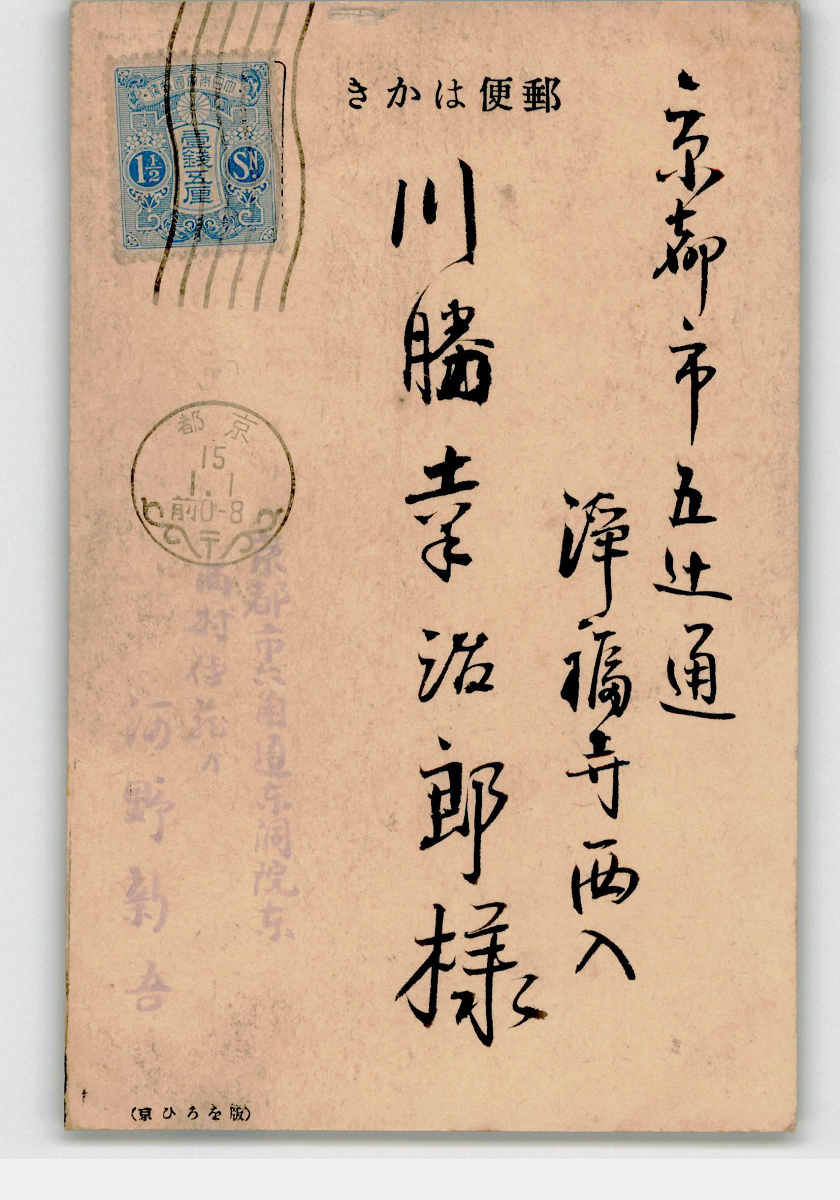 郵便はかき
京都市五辻通
淨福寺西入
川勝業治郎様
大日本帝國郵便
壹錢五厘
1½ SN.
京都
15
1.1
前0-8
京都市六角通東洞院東
西村佳苑方
河野新吾
(京ひろを版)